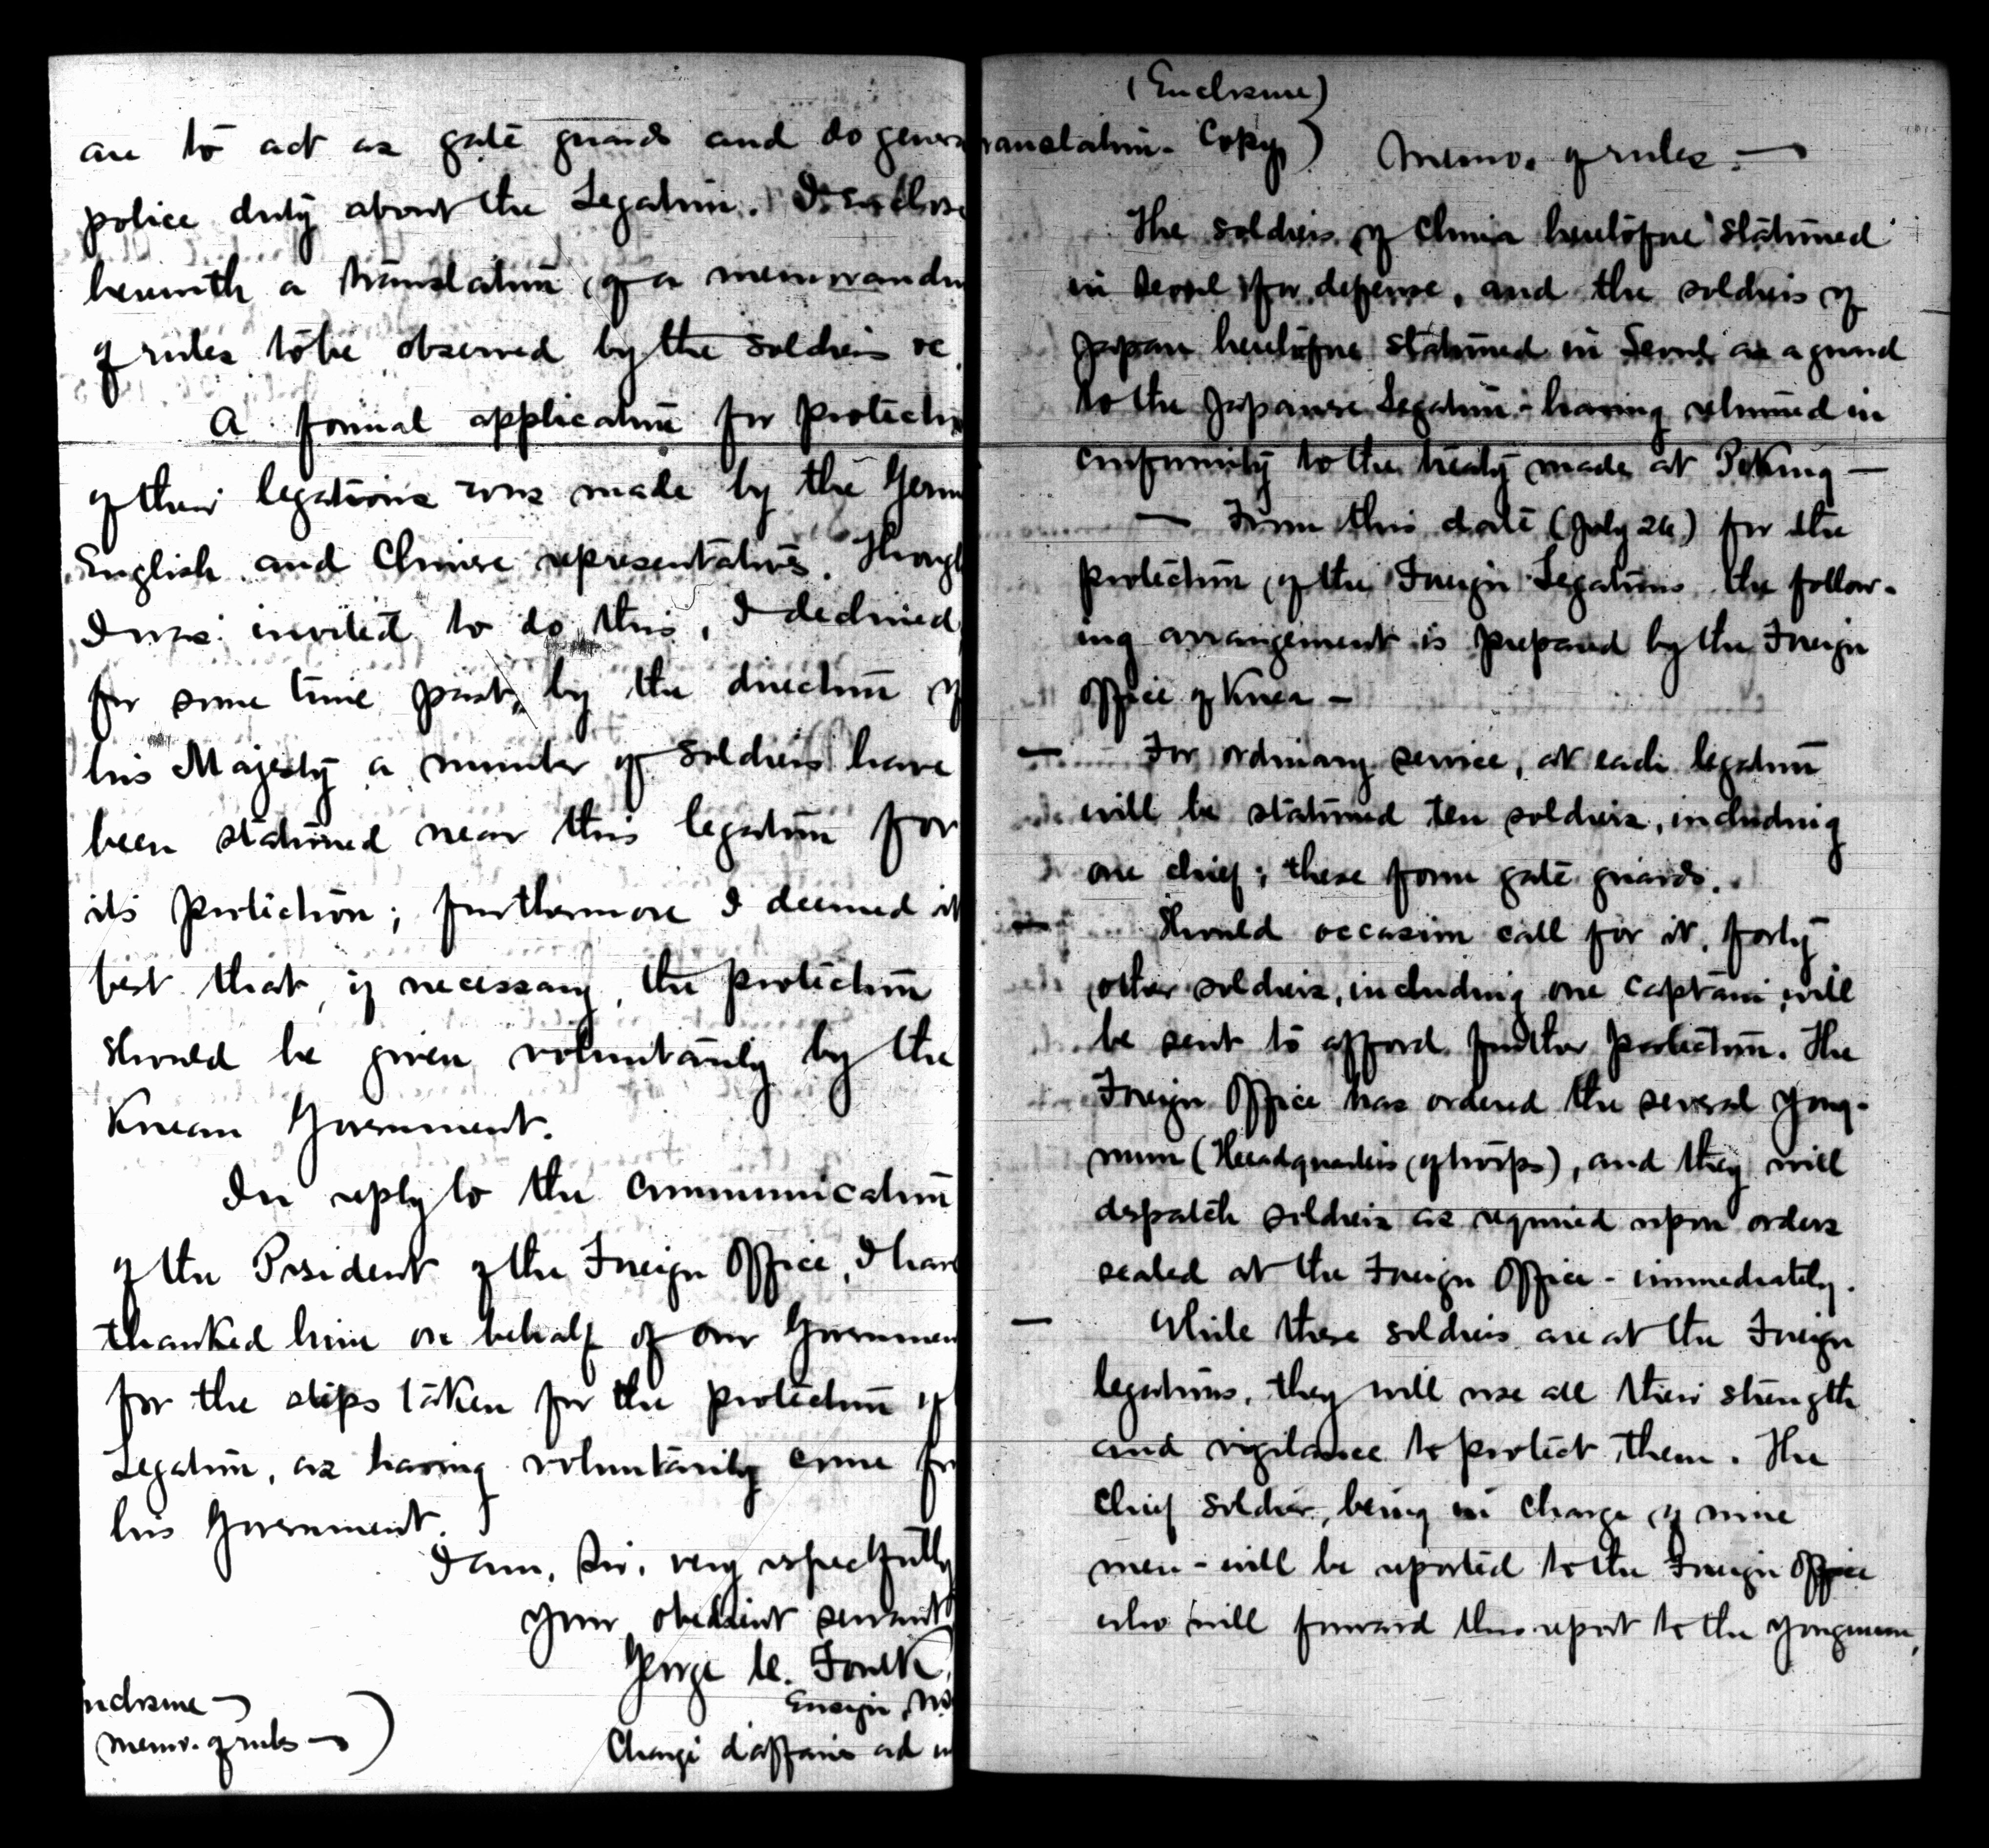 are to act as gate guards and do genera
police duty about the Legation. I enclose
herewith a translation of a memorandu
of rules to be observed by the soldiers &c.
A formal application for protectio
of their legations was made by the Germ
English and Chinese representatives. Though
I was invited to do this, I declined
for some time past, by the direction of
his Majesty a number of soldiers have
been stationed near this legation for
its protection; furthermore I deemed it
best that, if necessary, the protection
should be given voluntarily by the
Korean Government.
In reply to the communication
of the President of the Foreign Office, I have
thanked him on behalf of our Governmen
for the steps taken for the protection of
Legation, as having voluntarily come fro
his Government.
I am, Sir, very respectfully
your obedient servant
George C. Foulk,
Ensign, 
Chargé d'affaires ad in
nclosure —
Memo. of rules —)
(Enclosure)
ranslation. Copy) Memo. of rules. —
The soldiers of China heretofore stationed
in Seoul for defense, and the soldiers of
Japan heretofore stationed in Seoul as a guard
to the Japanese Legation - having returned in
conformity to the treaty made at Peking —
— From this date (July 26) for the
protection of the Foreign Legations the follow-
ing arrangement is prepared by the Foreign
Office of Korea —
— For ordinary service, at each legation
will be stationed ten soldiers, including
one chief; these form gate guards.
— Should occasion call for it, forty
other soldiers, including one captain, will
be sent to afford further protection. The
Foreign Office has ordered the several Yong-
mun (Headquarters of troops), and they will
dispatch soldiers as required upon orders
sealed at the Foreign Office - immediately.
— While these soldiers are at the Foreign
legations, they will use all their strength
and vigilance to protect them. The
chief soldier, being in charge of nine
men - will be reported to the Foreign Office
who will forward this report to the Yongmun,